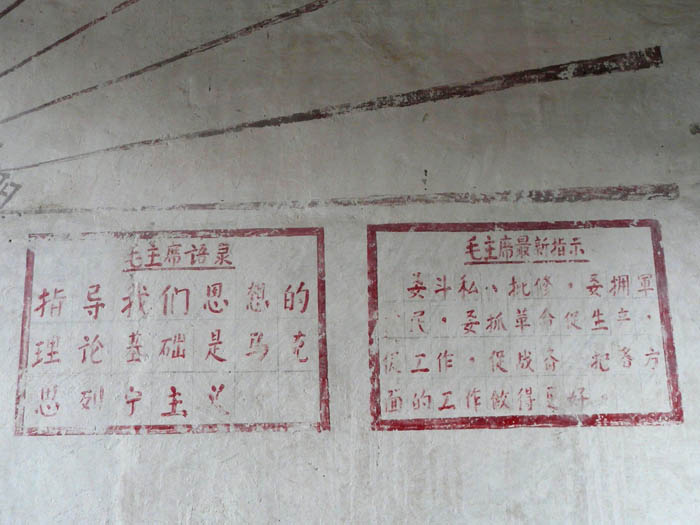 毛主席语录
指导我们思想的
理论基础是马克
思列宁主义
毛主席最新指示
要斗私、批修，要拥軍
民，要抓革命促生产，
促工作，促战备，把各方
面的工作做得更好。